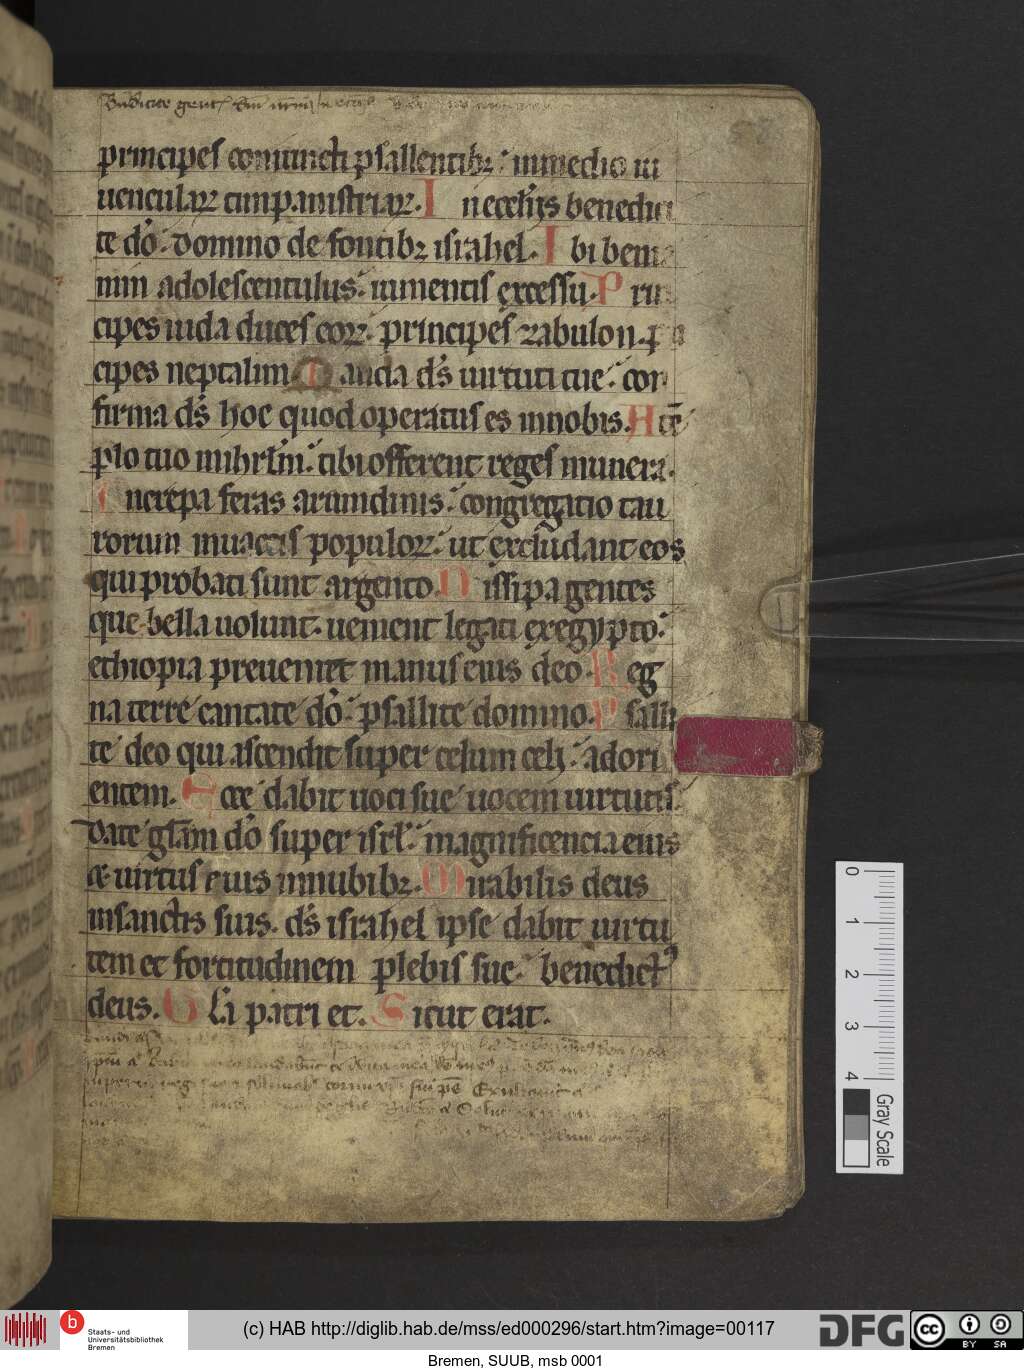 Benedicite gentes
principes coniuncti psallentibꝫ: inmedio iu
uenculaꝝ timpanistriaꝝ. In eccl'iis benedici
te dō: domino de fontibꝫ israhel. Ibi benia
min adolescentulus: inmentis excessu. Prin
cipes iuda duces eoꝝ: principes zabulon. prin
cipes neptalim. Manda dš uirtuti tue: con
firma dš hoc quod operatus es innobis. A tē
plo tuo inihrl'm: tibi offerent reges munera.
Increpa feras arundinis: congregatio tau
rorum inuaccis populoꝝ: ut excludant eos
qui probati sunt argento. Dissipa gentes
que bella uolunt. uenient legati exegypto:
ethiopia preueniet manus eius deo. Reg
na terre cantate dō: psallite domino. Psalli
te deo qui ascendit super celum celi: adori
entem. Ecce dabit uoci sue uocem uirtutis.
date gl'am dō super isrl': magnificencia eius
et uirtus eius innubibꝫ. Mirabilis deus
insanctis suis. dš israhel ipse dabit uirtu
tem et fortitudinem plebis sue: benedictꝰ
deus. Gl'a patri et. Sicut erat.
0
1
2
3
4
Gray Scale
b
Staats- und
Universitätsbibliothek
Bremen
(c) HAB http://diglib.hab.de/mss/ed000296/start.htm?image=00117
DFG
cc
BY SA
Bremen, SUUB, msb 0001